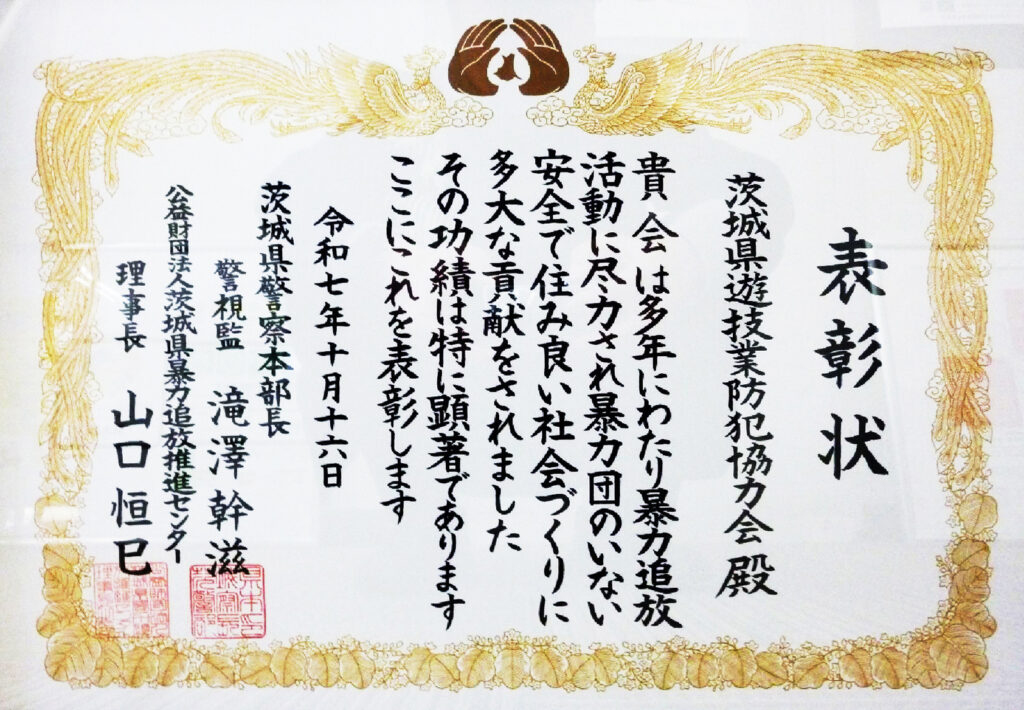 表彰状
茨城県遊技業防犯協力会殿
貴会は多年にわたり暴力追放
活動に尽力され暴力団のいない
安全で住み良い社会づくりに
多大な貢献をされました
その功績は特に顕著であります
ここにこれを表彰します
令和七年十月十六日
茨城県警察本部長
警視監 滝澤幹滋
公益財団法人茨城県暴力追放推進センター
理事長 山口恒巳